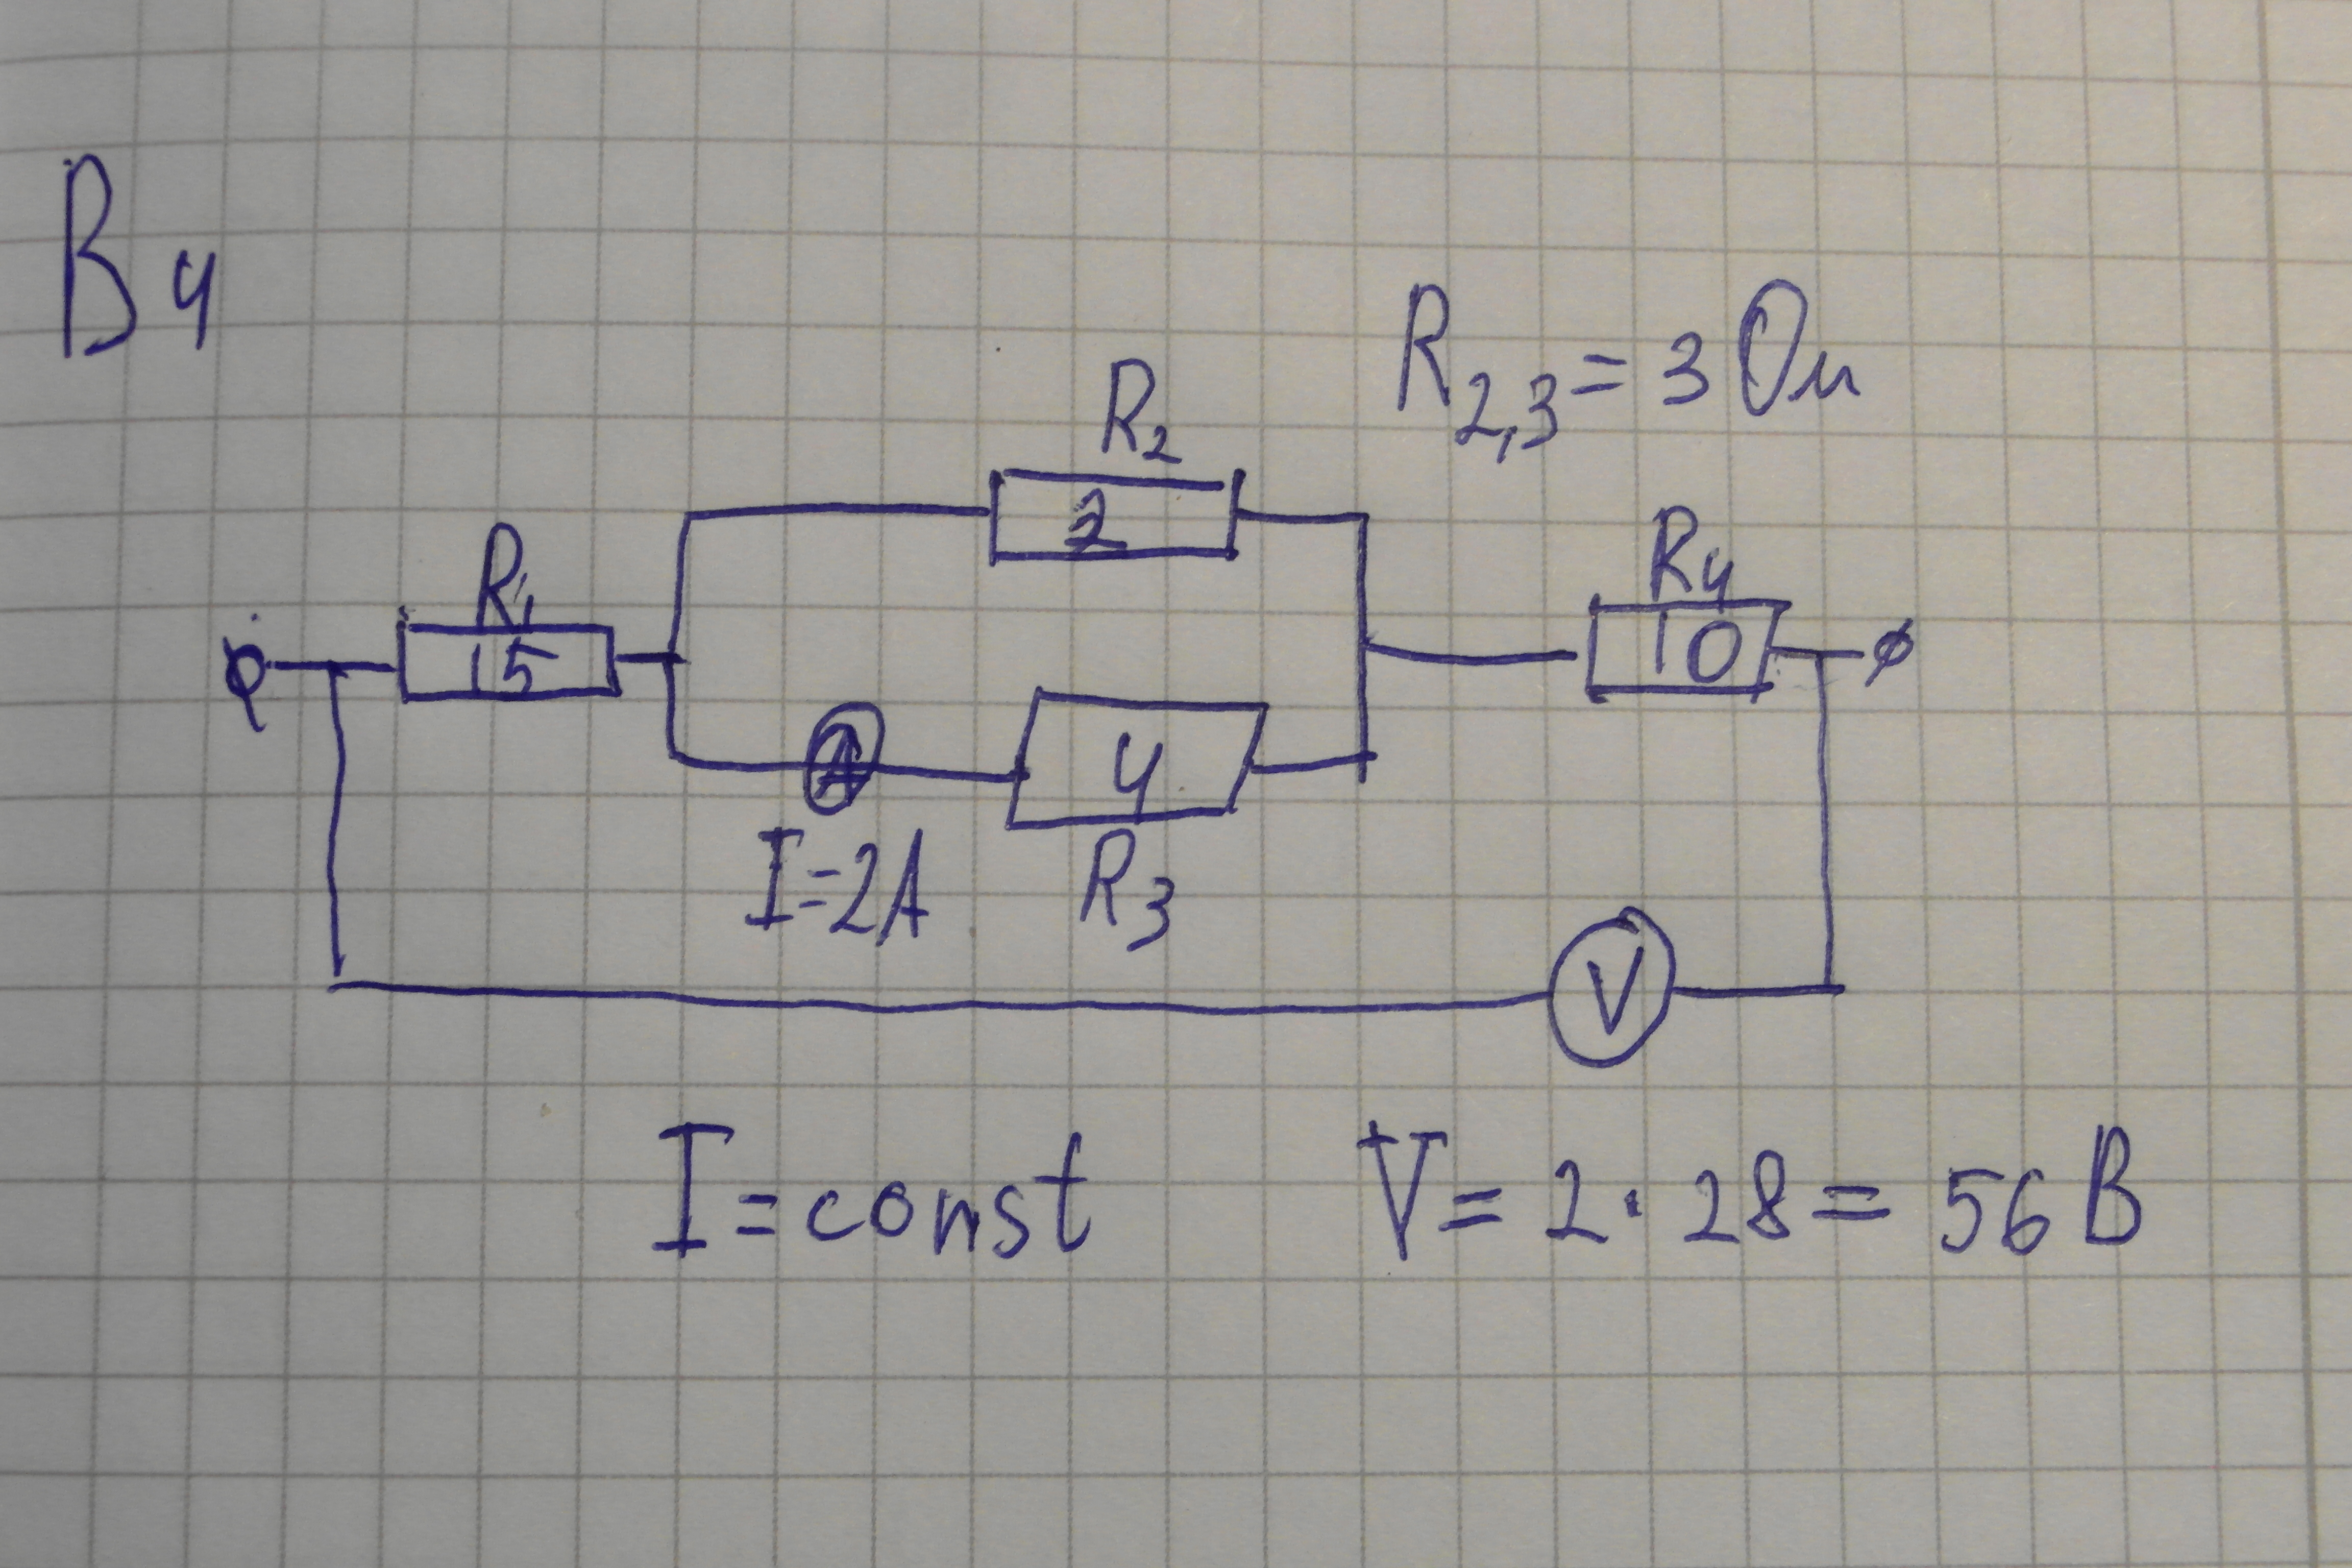 В4
R2,3 = 3 Ом
R2
2
R1
15
R4
10
A
4
I=2A
R3
V
I=const
V= 2·28= 56 В